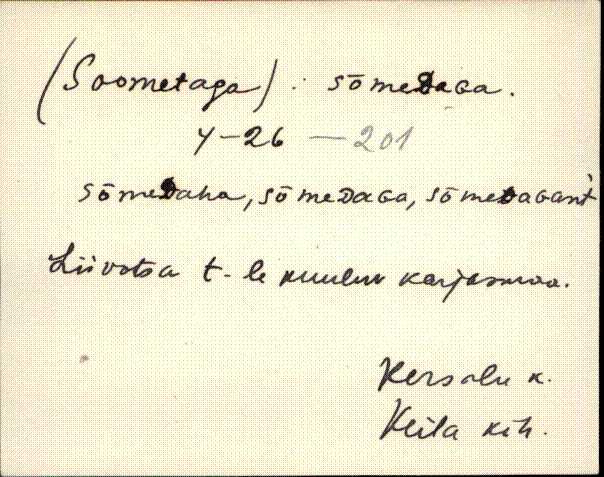 (Soometaga) : sōmeDaGa.
Y-26 — 201
sōmeDaha, sōmeDaGa, sōmeDaGant
Liivotsa t-le kuuluv karjasmaa.
Kersalu k.
Keila kih.